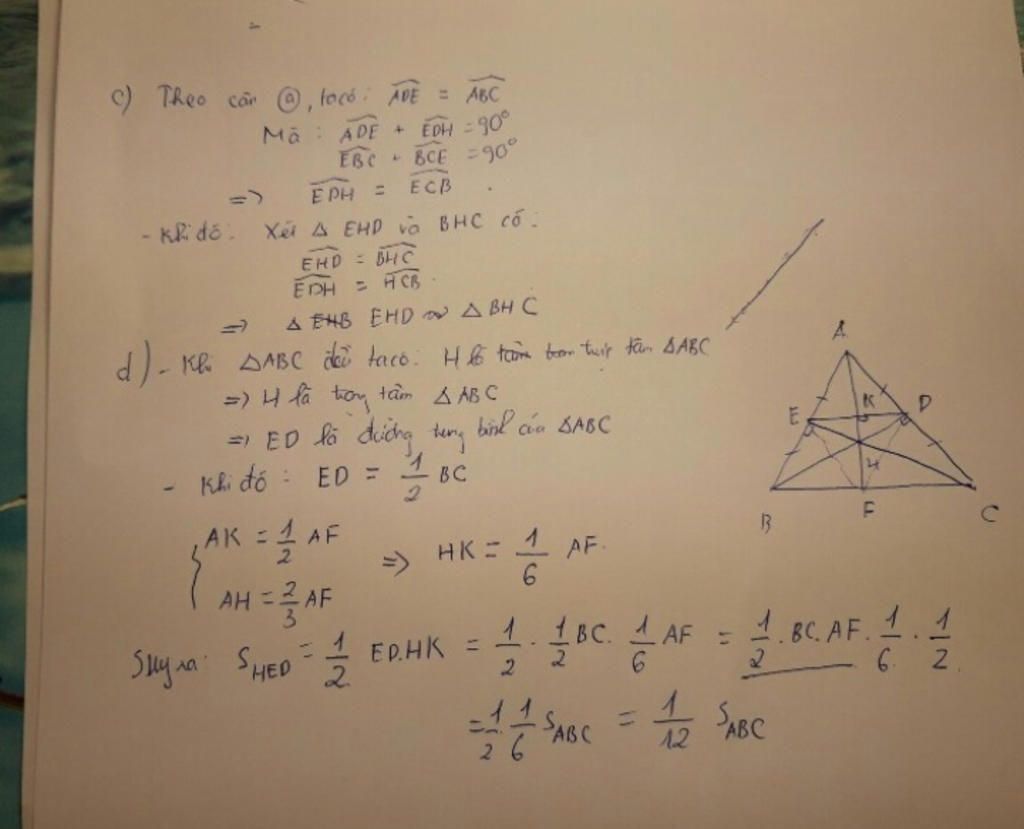 c) Theo câu ⓐ, ta có: \widehat{ADE} = \widehat{ABC}
Mà : \widehat{ADE} + \widehat{EDH} = 90°
\widehat{EBC} + \widehat{BCE} = 90°
=> \widehat{EDH} = \widehat{ECB} .
- Khi đó: Xét Δ EHD và BHC có:
\widehat{EHD} = \widehat{BHC}
\widehat{EDH} = \widehat{HCB} .
=> Δ EHD ∽ Δ BHC
d) - Khi ΔABC đều ta có: H là trực tâm ΔABC
=> H là trọng tâm Δ ABC
=> ED là đường trung bình của ΔABC
- Khi đó : ED = \frac{1}{2} BC
{ AK = \frac{1}{2} AF
AH = \frac{2}{3} AF
=> HK = \frac{1}{6} AF.
Suy ra: S_{HED} = \frac{1}{2} ED.HK = \frac{1}{2} . \frac{1}{2} BC. \frac{1}{6} AF = \frac{1}{2} . BC. AF. \frac{1}{6} . \frac{1}{2}.
= \frac{1}{2} . \frac{1}{6} S_{ABC} = \frac{1}{12} S_{ABC}
A
E K D
H
B F C